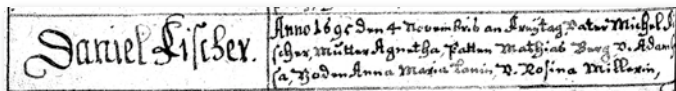 Daniel Fischer.
Anno 1695 den 4 Novembris an Freytag, Vater Michel Fi
scher, Mutter Agnetha, Patten Mathias Berg V. Adam
sa, Boden Anna Maria V. Rosina Millerin,